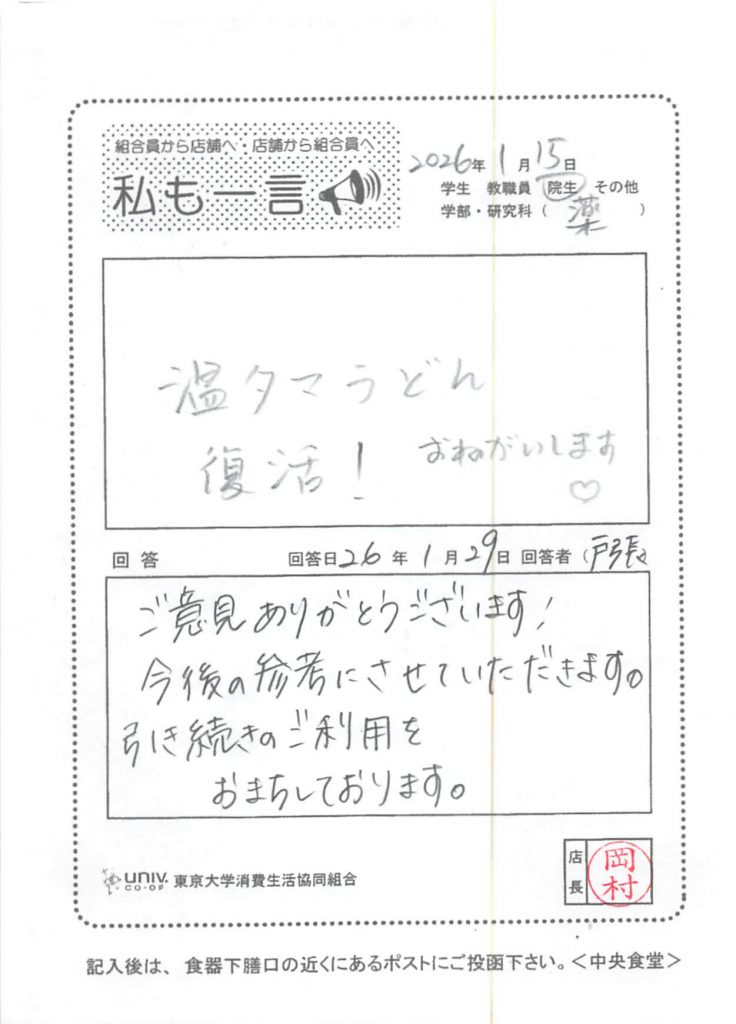 組合員から店舗へ・店舗から組合員へ
私も一言
2026年1月15日
学生 教職員 院生 その他
学部・研究科(薬)
温タマうどん
復活! おねがいします♡
回答 回答日26年1月29日 回答者(戸張)
ご意見ありがとうございます!
今後の参考にさせていただきます。
引き続きのご利用を
おまちしております。
UNIV. CO-OP 東京大学消費生活協同組合
店長 岡村
記入後は、食器下膳口の近くにあるポストにご投函下さい。<中央食堂>